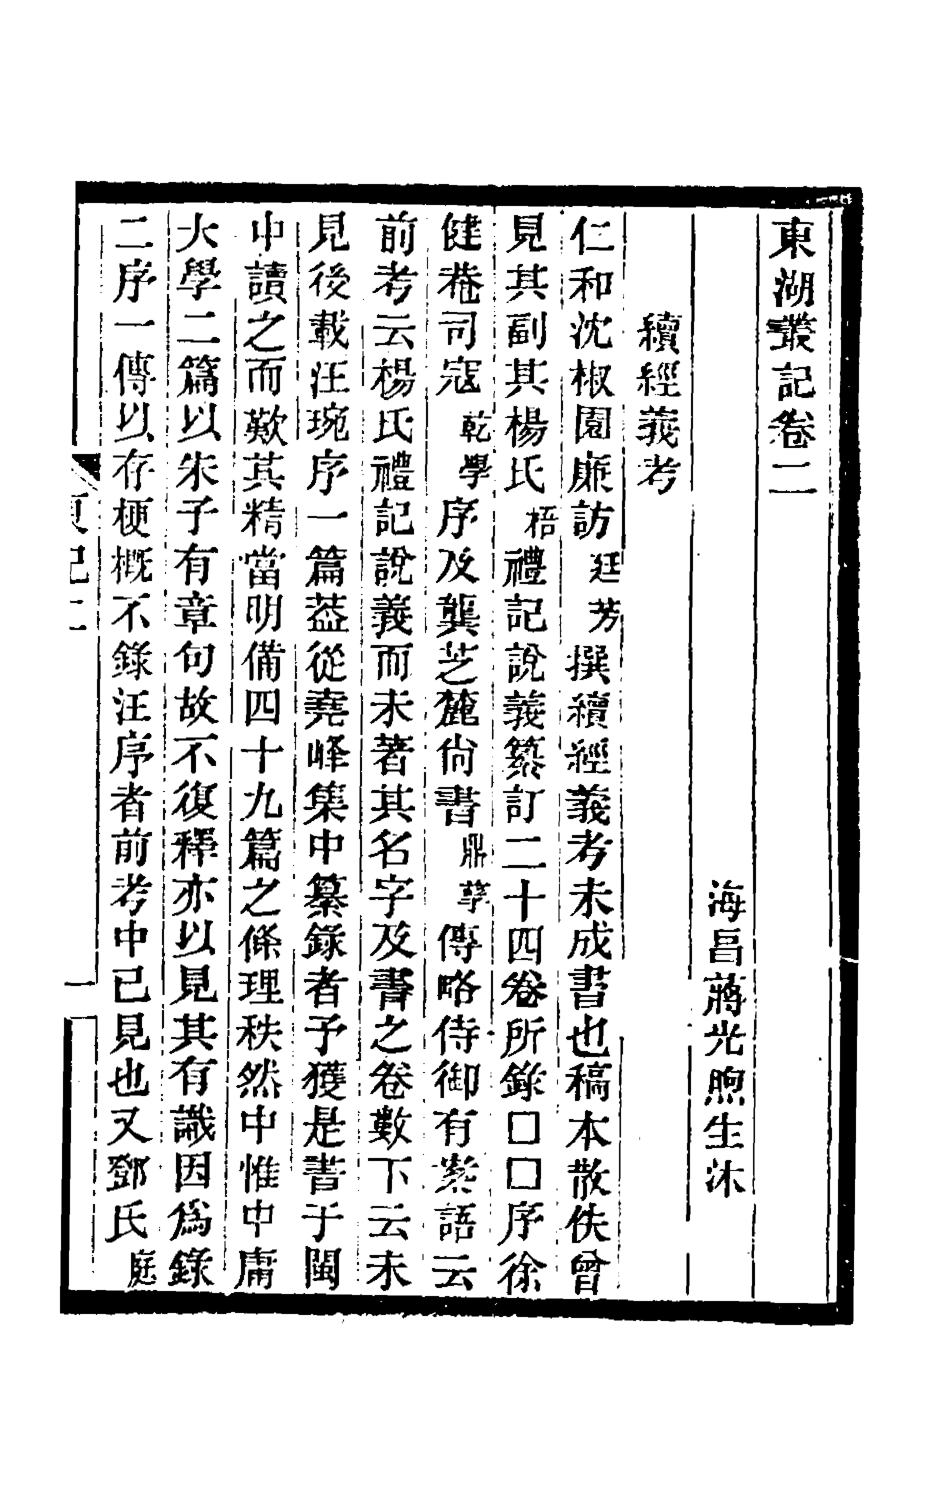 東湖叢記卷二
海昌蔣光煦生沐
續經義考
仁和沈椒園廉訪廷芳撰續經義考未成書也稿本散佚曾
見其副其楊氏梧禮記說義纂訂二十四卷所錄口口序徐
健菴司寇乾學序及龔芝麓尙書鼎孳傳略侍御有案語云
前考云楊氏禮記說義而未著其名字及書之卷數下云未
見後載汪琬序一篇葢從堯峰集中纂錄者予獲是書于閩
中讀之而歎其精當明備四十九篇之條理秩然中惟中庸
大學二篇以朱子有章句故不復釋亦以見其有識因爲錄
二序一傳以存梗概不錄汪序者前考中已見也又鄧氏庭
東記二
一